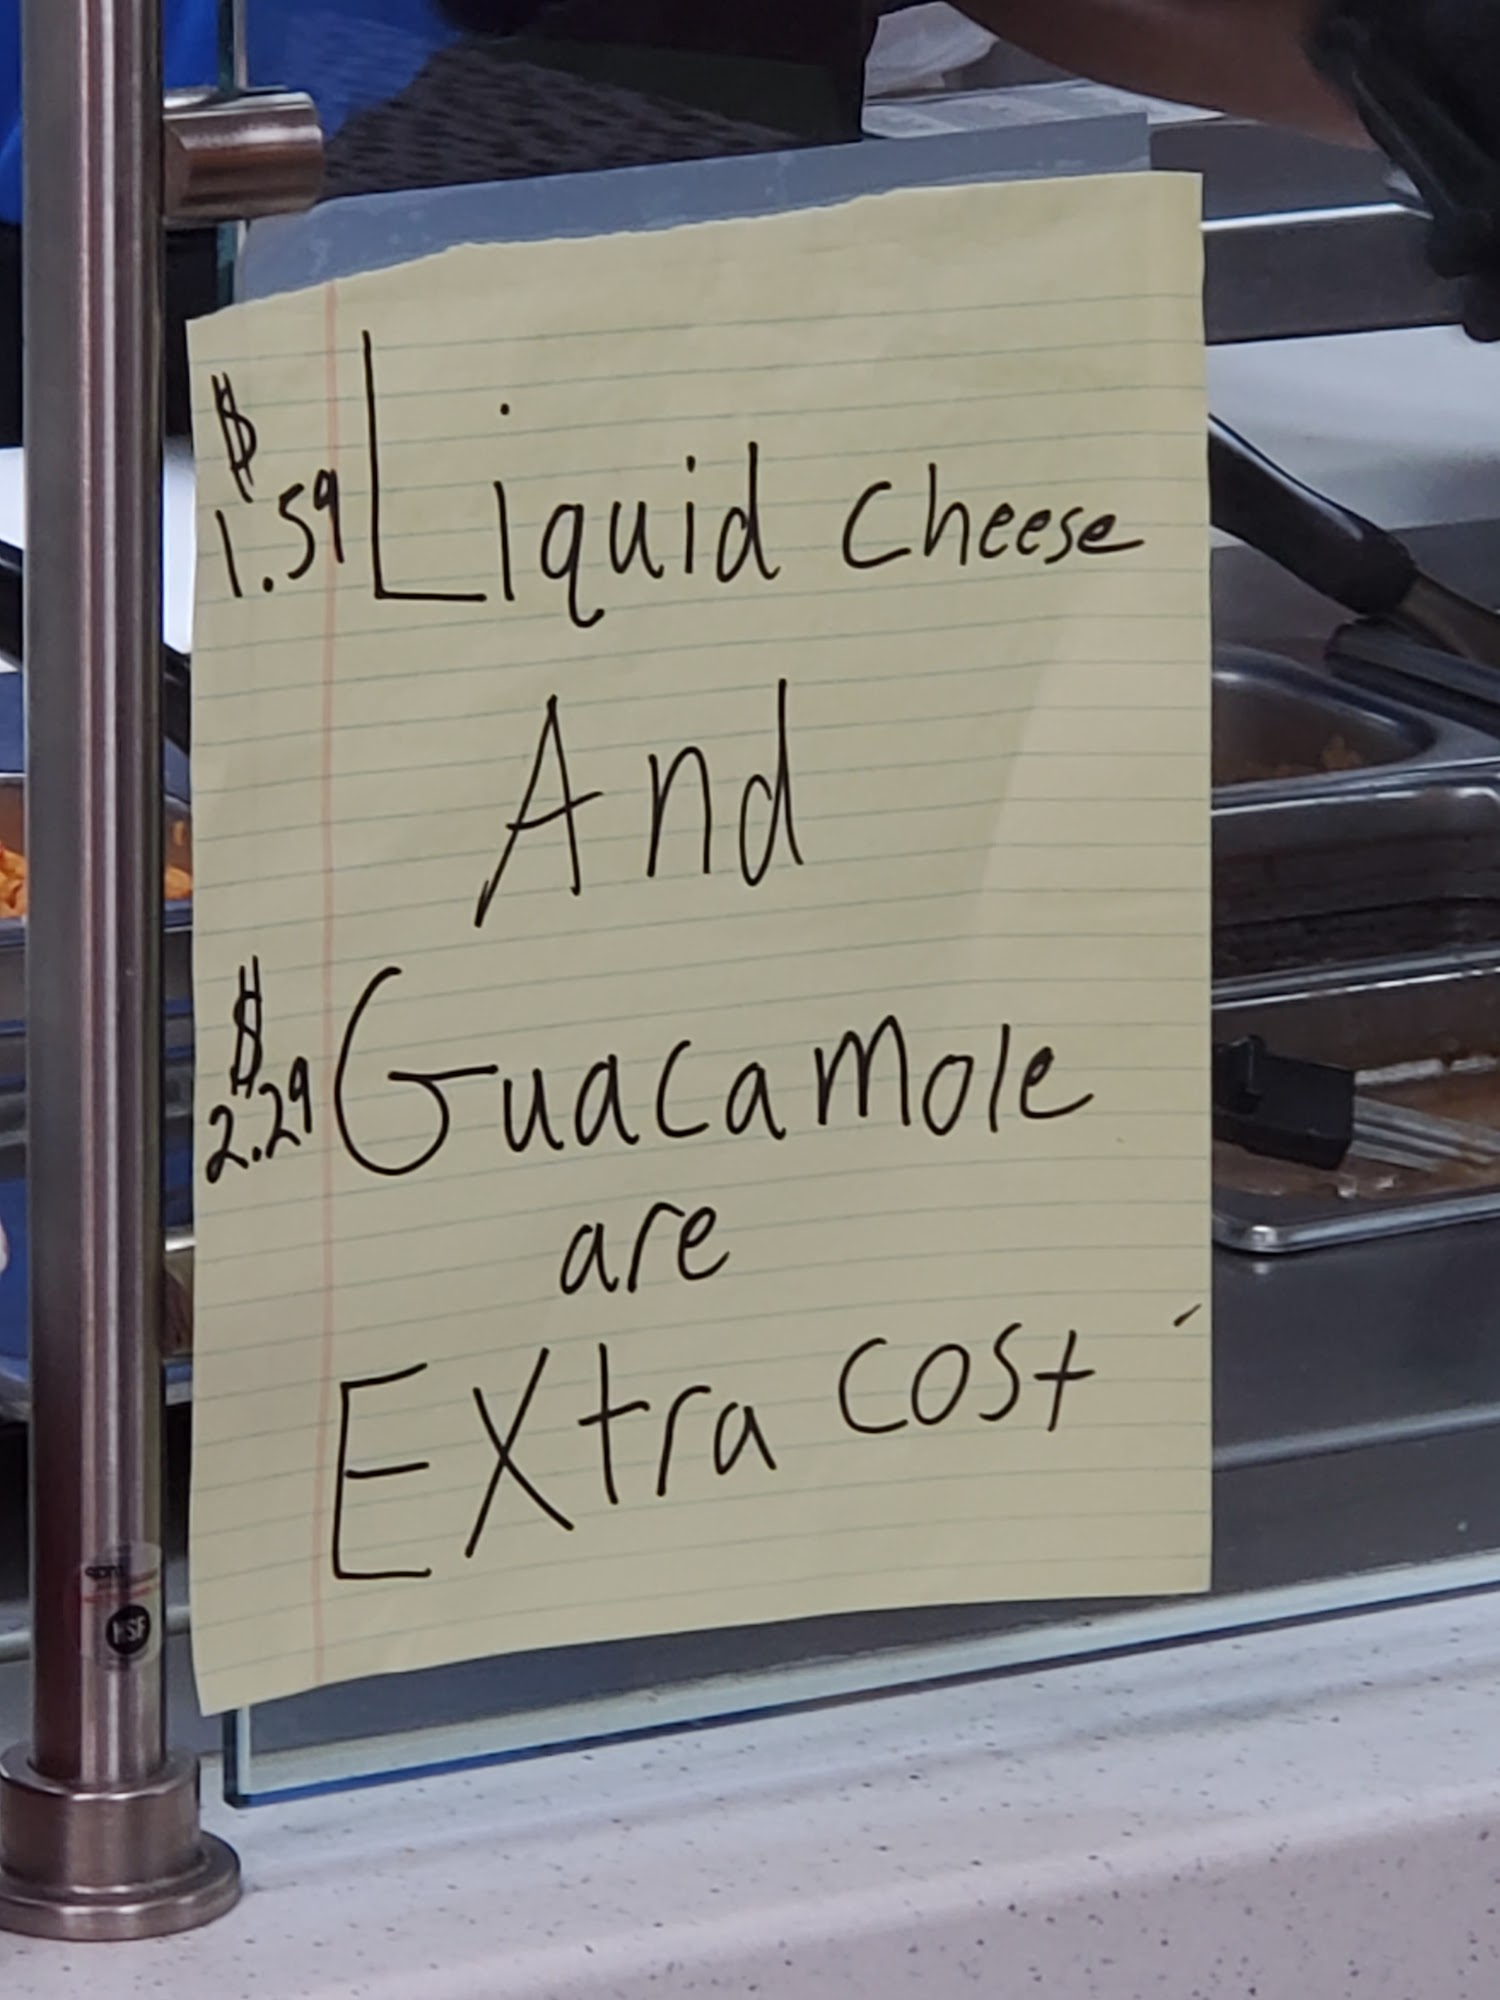 $
1.59 Liquid cheese
And
$
2.29 Guacamole
are
Extra cost
NSF